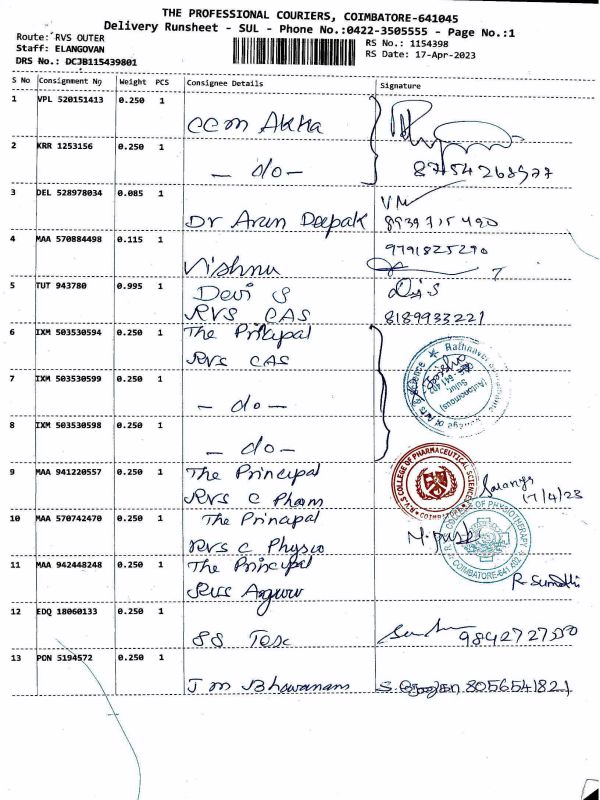 THE PROFESSIONAL COURIERS, COIMBATORE-641045
Delivery Runsheet - SUL - Phone No.:0422-3505555 - Page No.:1
Route: RVS OUTER
RS No.: 1154398
Staff: ELANGOVAN
RS Date: 17-Apr-2023
DRS No.: DCJB115439801
S No Consignment No Weight PCS Consignee Details Signature
1 VPL 520151413 0.250 1
CCM AKKA
2 KRR 1253156 0.250 1
- do - 8754268977
3 DEL 528978034 0.085 1 VM
Dr Arun Deepak 8939715490
4 MAA 570884498 0.115 1 9791825290
Vishnu
5 TUT 943780 0.995 1 Devi S
RVS CAS 8189933221
6 IXM 503530594 0.250 1 The Principal
RVS CAS
7 IXM 503530599 0.250 1
- do -
8 IXM 503530598 0.250 1
- do -
9 MAA 941220557 0.250 1 The Principal
RVS C Pharm 17/4/23
R.V.S COLLEGE OF PHARMACEUTICAL SCIENCES
10 MAA 570742470 0.250 1 The Principal
RVS C Physio
COLLEGE OF PHYSIOTHERAPY
COIMBATORE-641 402
11 MAA 942448248 0.250 1 The Principal
RVS
12 EDQ 18060133 0.250 1
SS Tex 9842727550
13 PON 5194572 0.250 1
J M Bhavanam 8056541821